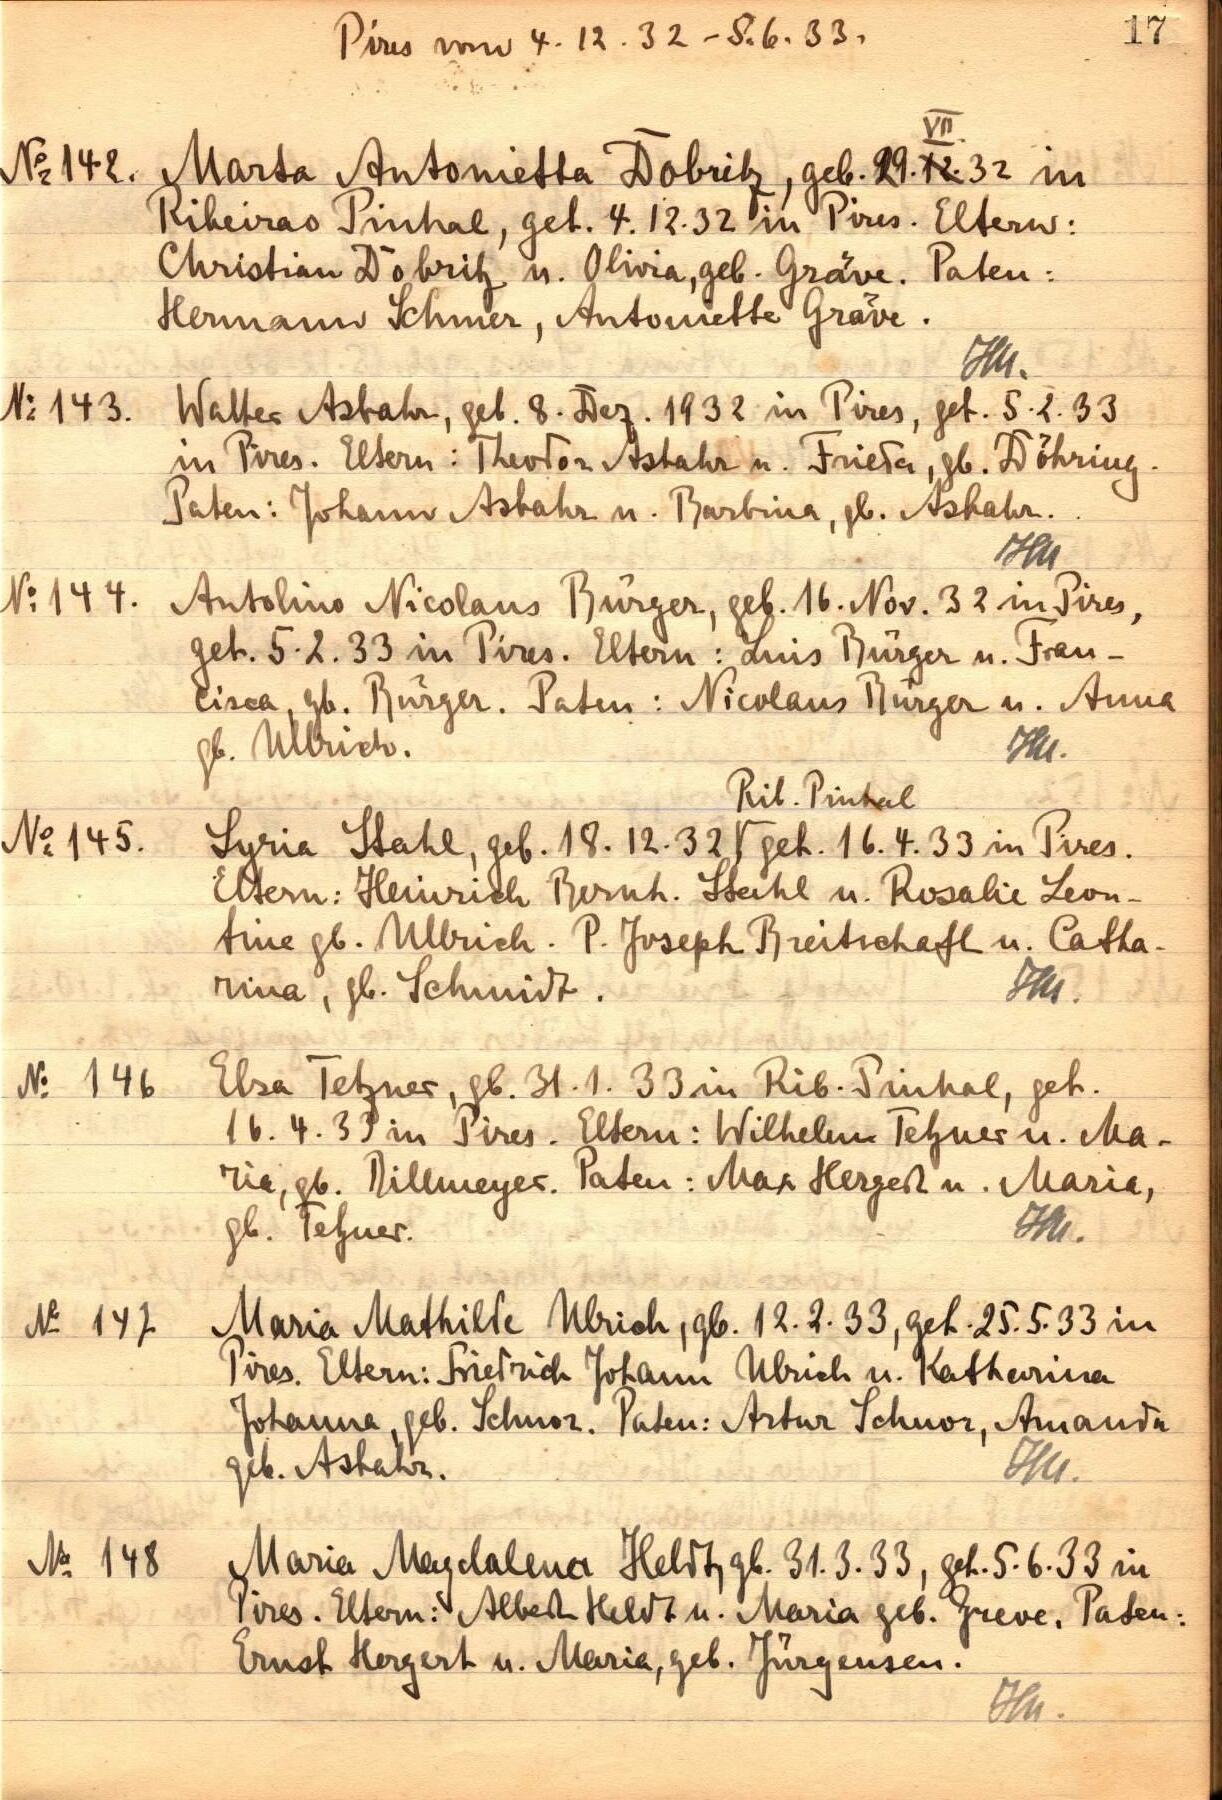 17
Pires vom 4.12.32 - 5.6.33.
VII.
No 142. Marta Antonietta Dobritz, geb. 29.12.32 in
Ribeirao Pinhal, get. 4.12.32 in Pires. Eltern:
Christian Dobritz u. Olivia, geb. Gräve. Paten:
Hermann Schmer, Antonette Gräve.
No 143. Walter Asbahr, geb. 8. Dez. 1932 in Pires, get. 5.2.33
in Pires. Eltern: Theodor Asbahr u. Frieda, gb. Döhring.
Paten: Johann Asbahr u. Barbina, gb. Asbahr.
No 144. Antolino Nicolaus Bürger, geb. 16. Nov. 32 in Pires,
get. 5.2.33 in Pires. Eltern: Luis Bürger u. Fran-
cisca, gb. Bürger. Paten: Nicolaus Bürger u. Anna
gb. Ullrich.
Rib. Pinhal
No 145. Syria Stahl, geb. 18.12.32 get. 16.4.33 in Pires.
Eltern: Heinrich Bernh. Stahl u. Rosalie Leon-
tine gb. Ullrich. P. Joseph Breitschaft u. Catha-
rina, gb. Schmidt.
No 146 Elsa Tetzner, gb. 31.1.33 in Rib. Pinhal, get.
16.4.33 in Pires. Eltern: Wilhelm Tetzner u. Ma-
ria, gb. Dillmeyer. Paten: Max Hergert u. Maria,
gb. Tetzner.
No 147 Maria Mathilde Ulrich, gb. 12.2.33, get. 25.5.33 in
Pires. Eltern: Friedrich Johann Ulrich u. Katharina
Johanna, geb. Schnor. Paten: Artur Schnor, Amanda
geb. Asbahr.
No 148 Maria Magdalena Heldt, gb. 31.3.33, get. 5.6.33 in
Pires. Eltern: Albert Heldt u. Maria geb. Greve. Paten:
Ernst Hergert u. Maria, geb. Jürgensen.